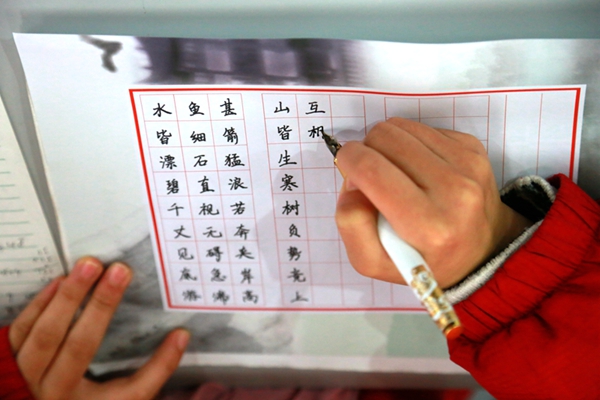 水皆漂碧千丈见底游
鱼细石直视无碍急湍
甚箭猛浪若奔夹岸高
山皆生寒树负势竞上
互相